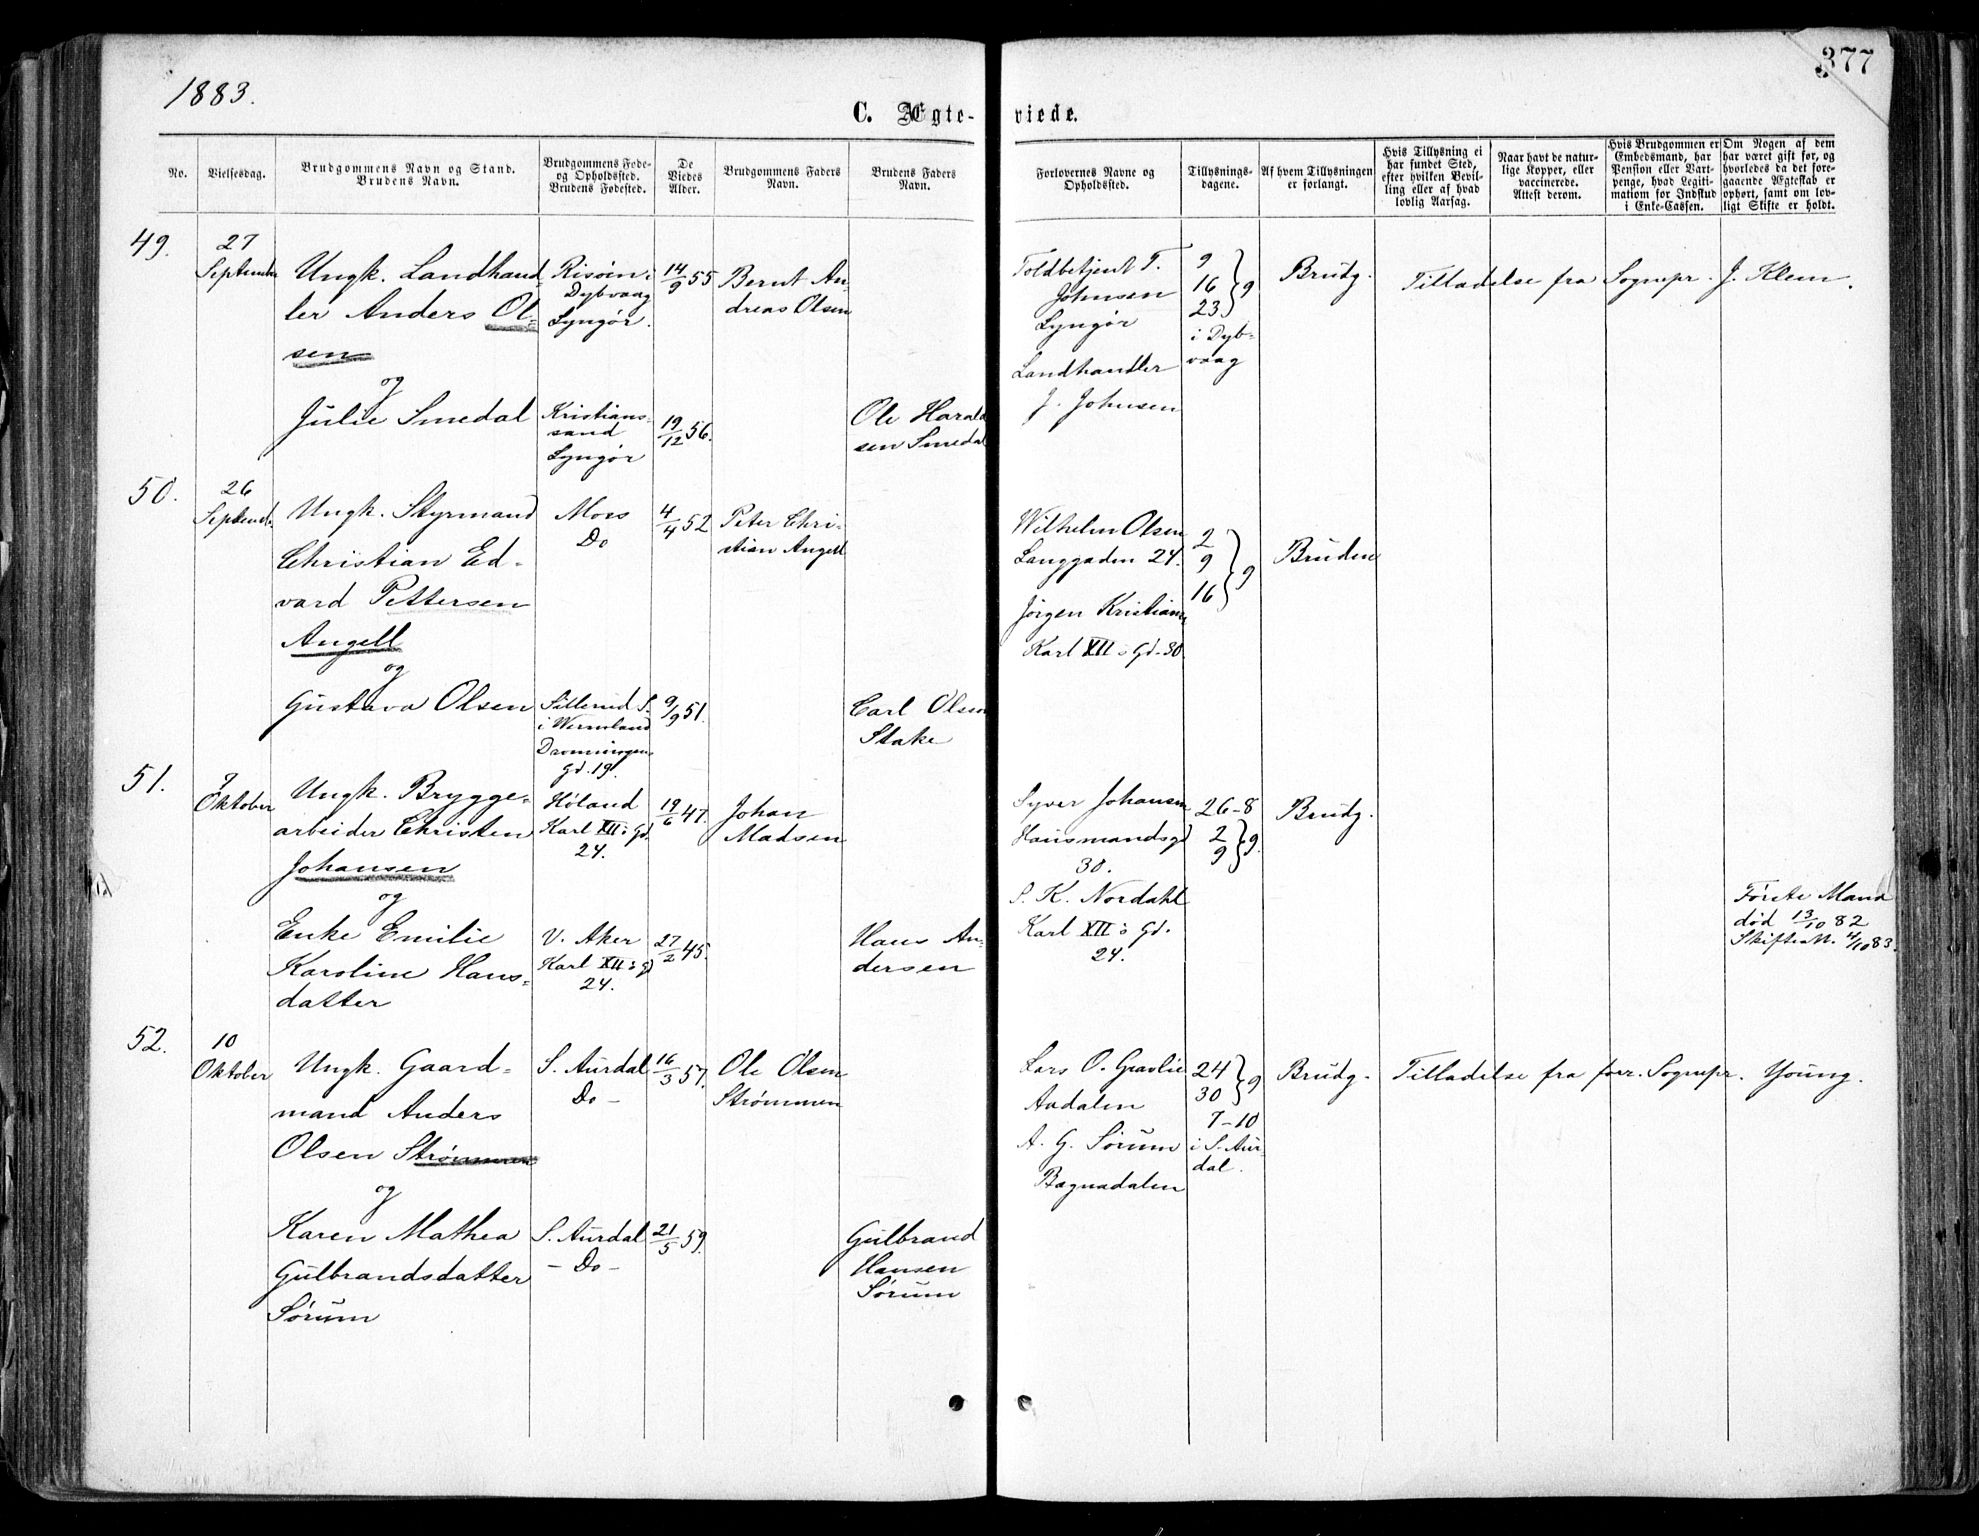 1883.
377
C. Ægte-
viede.
No.
Vielsesdag.
Brudgommens Navn og Stand.
Brudens Navn.
Brudgommens Føde-
og Opholdssted.
Brudens Fødested.
De
Viedes
Alder.
Brudgommens Faders
Navn.
Brudens Faders
Navn.
Forlovernes Navne og
Opholdssted.
Tillysnings-
dagene.
Af hvem Tillysningen
er forlangt.
Hvis Tillysning ei
har fundet Sted,
efter hvilken Bevil-
ling eller af hvad
lovlig Aarsag.
Naar havt de natur-
lige Kopper, eller
vaccinerede.
Attest derom.
Hvis Brudgommen er
Embedsmand, har
Pension eller Vart-
penge, hvad Legiti-
mation for Indskud
i Enke-Cassen.
Om Nogen af dem
har været gift før, og
hvorledes da det fore-
gaaende Ægteskab er
ophørt, samt om lov-
ligt Skifte er holdt.
49.
27
September
Ungk. Landhand-
ler Anders Ol-
sen
og
Julie Smedal
Risøen i
Dybvaag
Lyngør.
Kristians-
sand
Lyngør
14/9 55
19/12 56.
Bernt An-
dreas Olsen
Ole Harald
sen Smedal
Toldbetjent T.
Johnsen
Lyngør
Landhandler
J. Johnsen
9
16 } 9
23
i Dyb-
vaag
Brudg.
Tilladelse fra Sognepr. J. Klem.
50.
26
Septemb.
Ungk. Styrmand
Christian Ed-
vard Pettersen
Angell
og
Gustava Olsen
Moss
Do
Sillerud S.
i Wermland
Dronningens
Gd. 19.
4/4 52
9/9 51.
Peter Chri-
stian Angell
Carl Olsen
Stake
Wilhelm Olsen
Langgaden 24.
Jørgen Kristians
Karl XII s Gd. 30.
2
9 } 9
16
Bruden
51.
7
Oktober
Ungk. Brygge-
arbeider Christen
Johansen
og
Enke Emilie
Karoline Hans-
datter
Høland
Karl XII s Gd.
24.
V. Aker
Karl XII s G
24.
19/6 47.
27/2 45.
Johan
Madsen
Hans An-
dersen
Syver Johansen
Hausmandsgd
30.
S. K. Nordahl
Karl XII s Gd.
24.
26-8
2
9 } 9.
Brudg.
Første Mand
død 13/10 82
Skifteatt. 4/10 83.
52.
10
Oktober
Ungk. Gaard-
mand Anders
Olsen Strømmen
og
Karen Mathea
Gulbrandsdatter
Sørum
S. Aurdal
Do -
S. Aurdal
- Do -
16/3 57.
21/5 59.
Ole Olsen
Strømmen
Gulbrand
Hansen
Sørum
Lars O. Gravlie
Aadalen
A. G. Sørum
Bagnadalen
24
30 } 9
7-10
i S. Aur-
dal.
Brudg.
Tilladelse fra forr. Sognepr. Young.